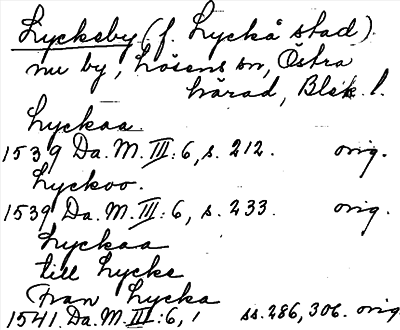 Lyckeby (f. Lyckå stad).
nu by, Lösens sn, Östra
härad, Blek. l.
Lyckaa
1539 Da. M. III: 6, s. 212. orig.
Lyckoo.
1539 Da. M. III: 6, s. 233. orig.
Lyckaa
till Lycke
Fran Lycka
1541. Da. M. III: 6, 1 ss. 286, 306. orig.